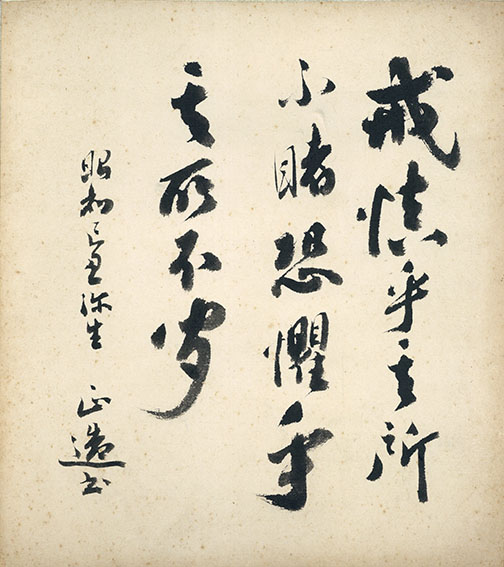 戒慎乎其所
不睹恐懼乎
其所不聞
昭和弥生 正造書